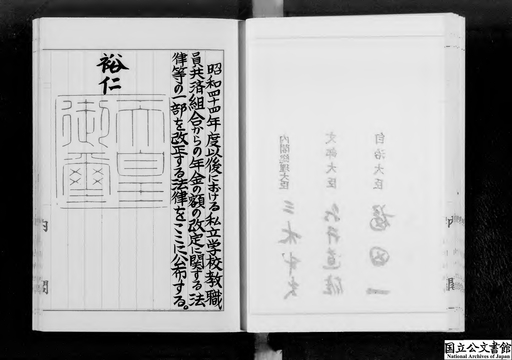 昭和四十四年度以後における私立学校教職
員共済組合からの年金の額の改定に関する法
律等の一部を改正する法律をここに公布する。
裕仁
天皇
御璽
内
閣
自治大臣
文部大臣
内閣総理大臣
国立公文書館
National Archives of Japan